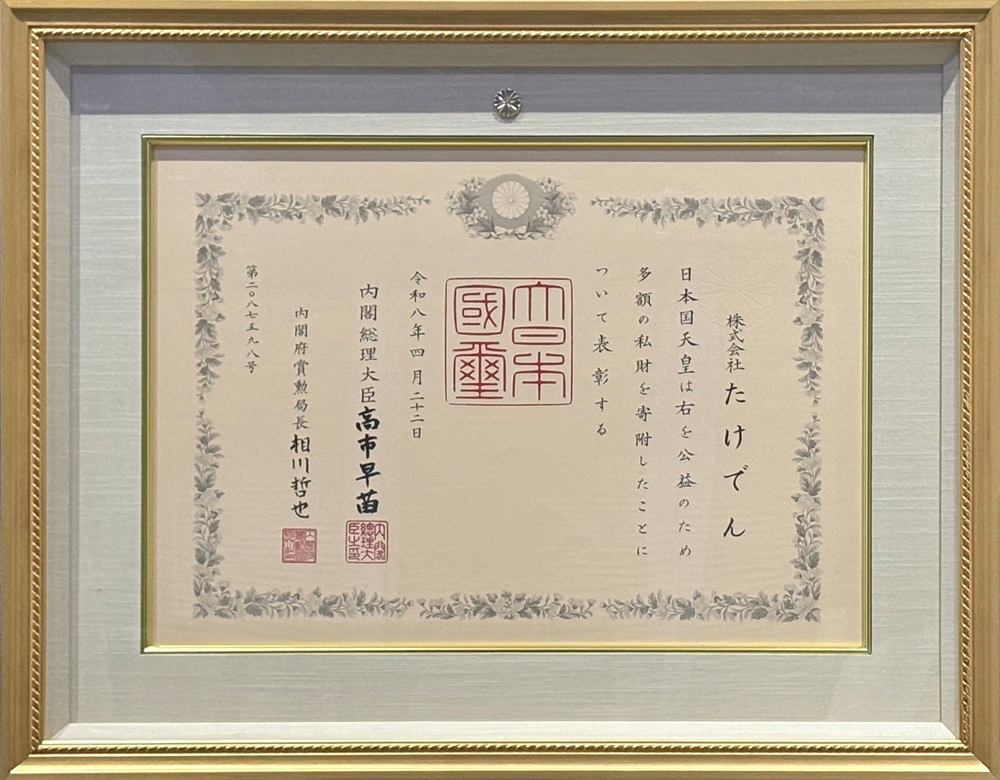 株式会社 たけでん
日本国天皇は右を公益のため
多額の私財を寄附したことに
ついて表彰する
大日本
國璽
令和八年四月二十二日
内閣総理大臣 高市早苗
内閣総理大臣之印
内閣府賞勲局長 相川哲也
第二〇八七五九八号